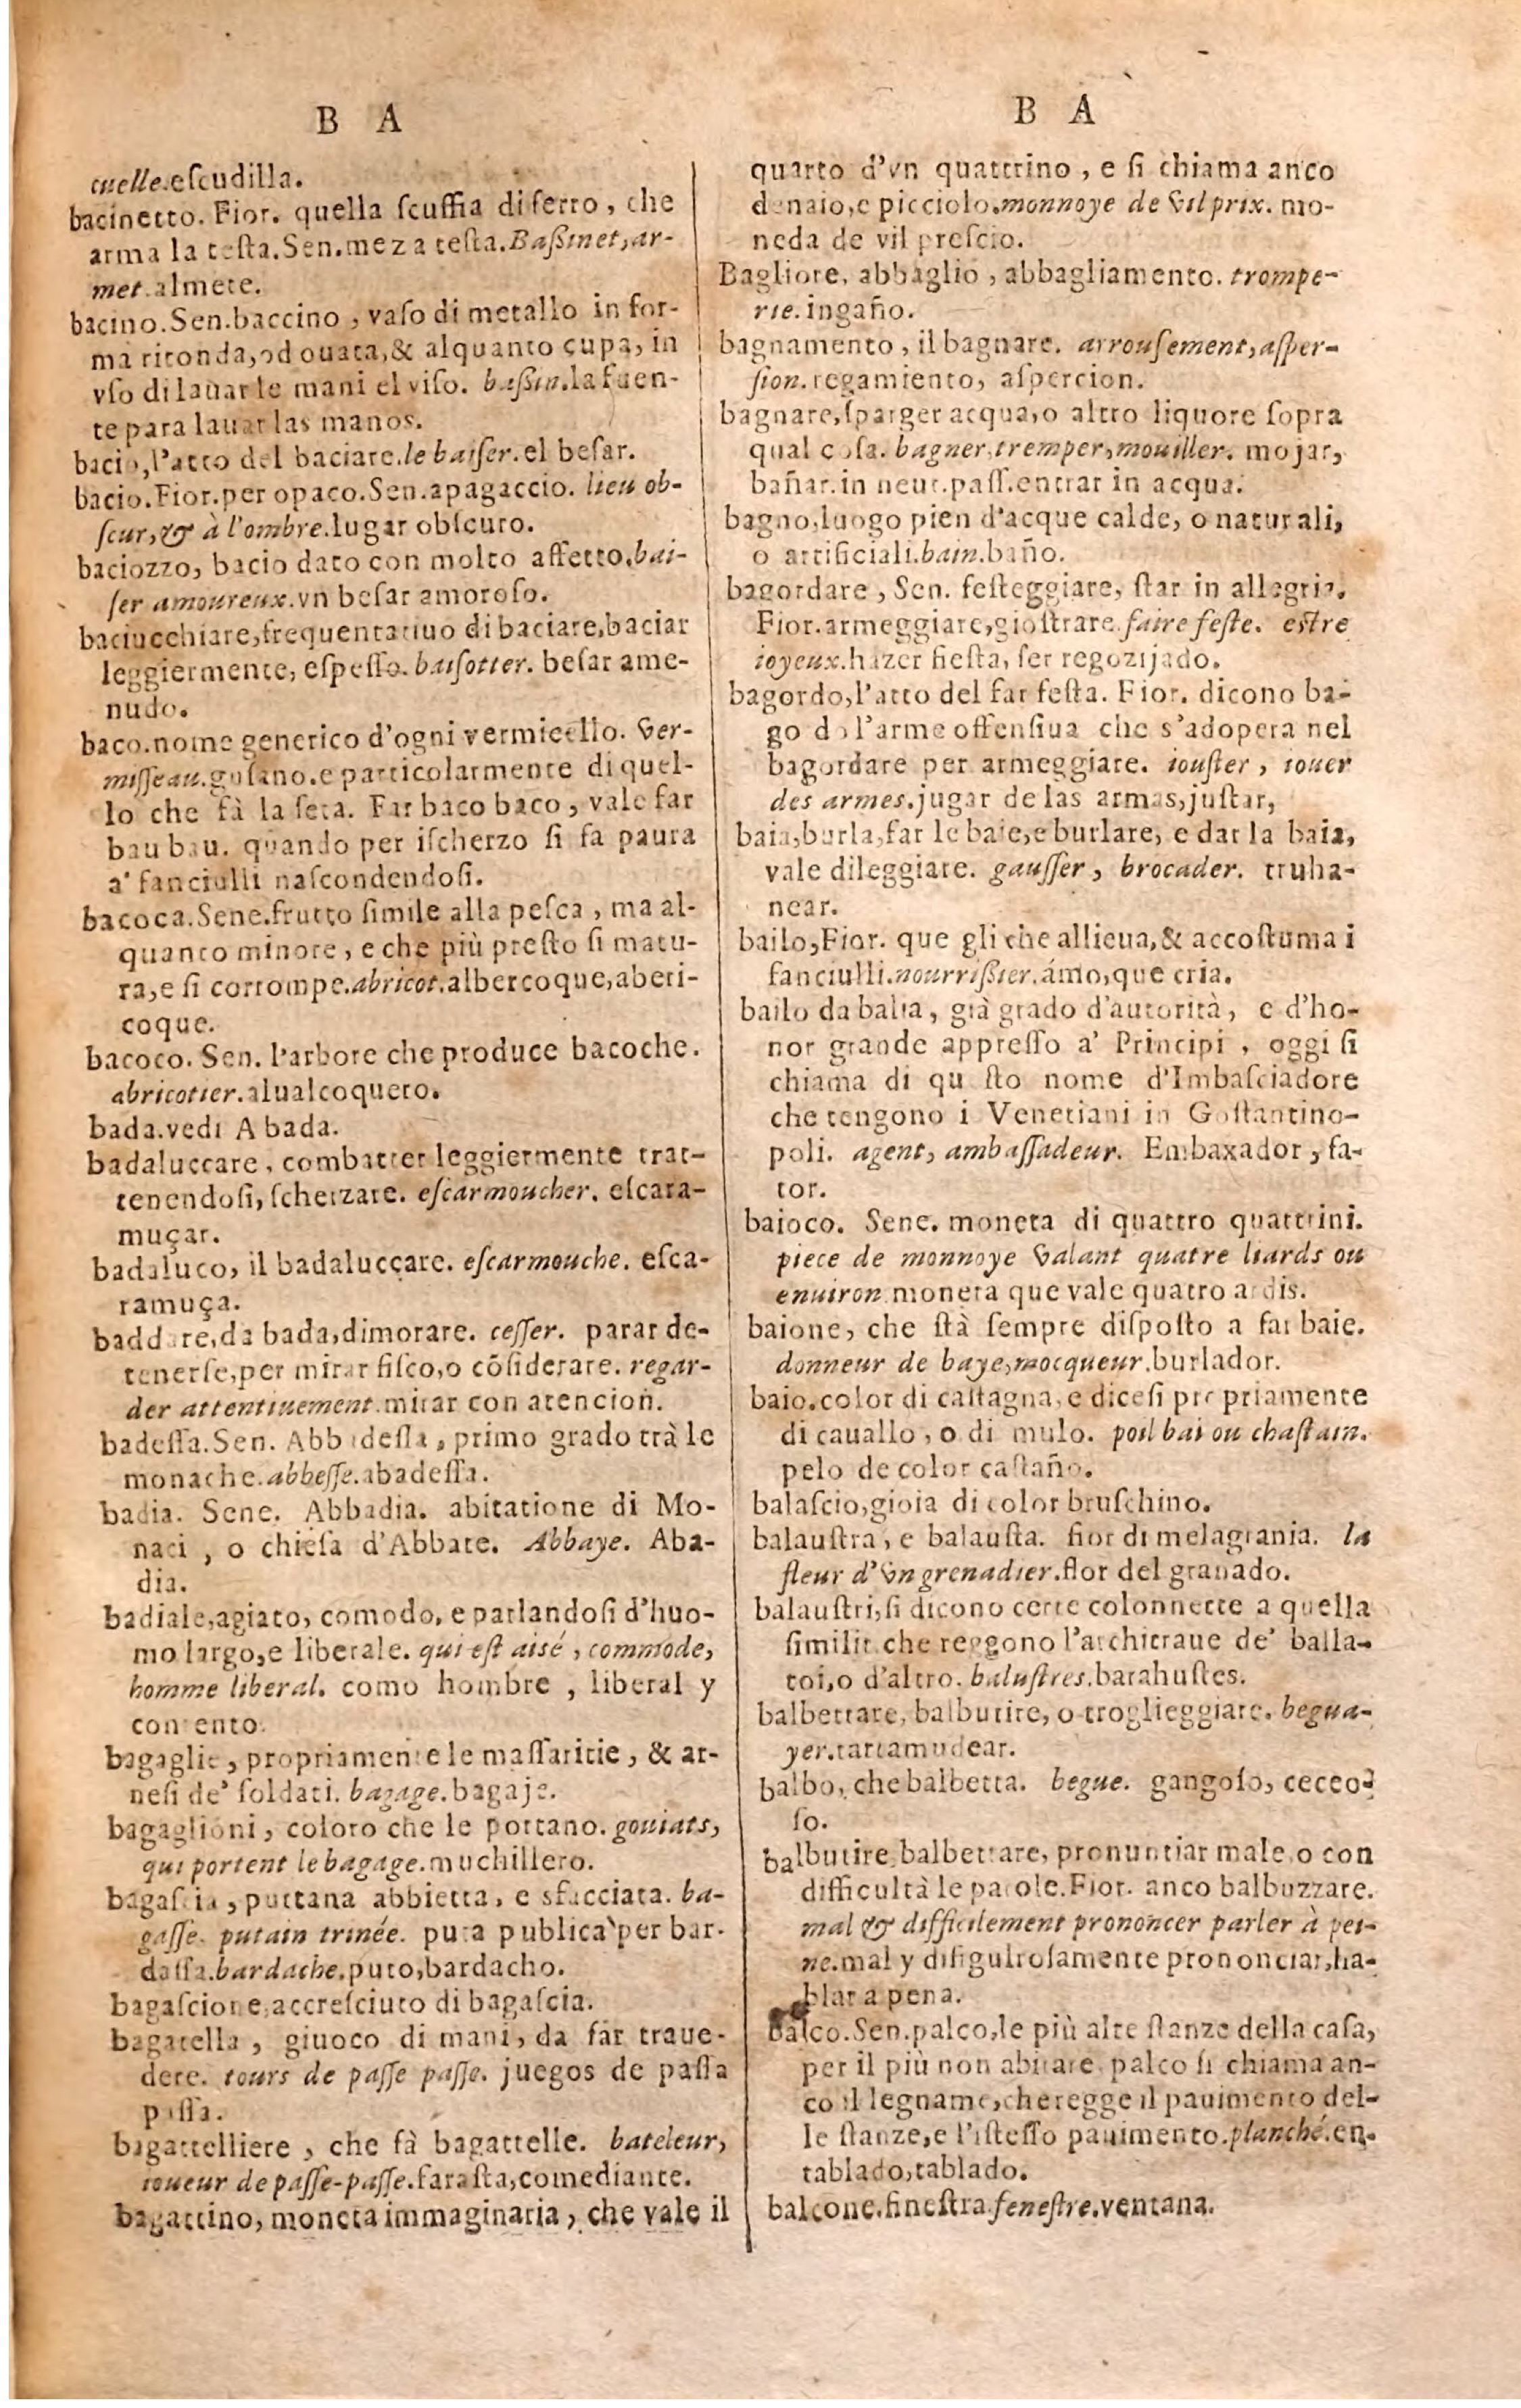 B A
cuelle.eſcudilla.
bacinetto. Fior. quella ſcuffia di ferro, che
arma la teſta.Sen.meza teſta.Baßinet,ar-
met.almete.
bacino.Sen.baccino, vaſo di metallo in for-
ma ritonda,od ouata,& alquanto cupa, in
vſo di lauar le mani el viſo. baßin.la fuen-
te para lauar las manos.
bacio,l'atto del baciare.le baiſer.el beſar.
bacio.Fior.per opaco.Sen.apagaccio. lieu ob-
ſcur,& à l'ombre.lugar obſcuro.
baciozzo, bacio dato con molto affetto.bai-
ſer amoureux.vn beſar amoroſo.
baciucchiare,frequentatiuo di baciare,baciar
leggiermente, eſpeſſo. baiſotter. beſar ame-
nudo.
baco.nome generico d'ogni vermicello. Ver-
miſſeau.guſano.e particolarmente di quel-
lo che fà la ſeta. Far baco baco, vale far
bau bau. quando per iſcherzo ſi fa paura
a' fanciulli naſcondendoſi.
bacoca.Sene.frutto ſimile alla peſca, ma al-
quanto minore, e che più preſto ſi matu-
ra,e ſi corrompe.abricot.albercoque,aberi-
coque.
bacoco. Sen. l'arbore che produce bacoche.
abricotier.alualcoquero.
bada.vedi A bada.
badaluccare, combatter leggiermente trat-
tenendoſi, ſcherzare. eſcarmoucher. eſcara-
muçar.
badaluco, il badaluccare. eſcarmouche. eſca-
ramuça.
baddare,da bada,dimorare. ceſſer. parar de-
tenerſe,per mirar fiſco,o cõſiderare. regar-
der attentiuement.mirar con atencion.
badeſſa.Sen. Abbadeſſa, primo grado trà le
monache.abbeſſe.abadeſſa.
badia. Sene. Abbadia. abitatione di Mo-
naci, o chieſa d'Abbate. Abbaye. Aba-
dia.
badiale,agiato, comodo, e parlandoſi d'huo-
mo largo,e liberale. qui eſt aisé, commode,
homme liberal. como hombre, liberal y
contento.
bagaglie, propriamente le maſſaritie, & ar-
neſi de' ſoldati. bagage.bagaje.
bagaglioni, coloro che le portano. gouiats,
qui portent le bagage.muchillero.
bagaſcia, puttana abbietta, e sfacciata. ba-
gaſſe. putain trinée. puta publica per bar-
daſſa.bardache.puto,bardacho.
bagaſcione,accreſciuto di bagaſcia.
bagatella, giuoco di mani, da far traue-
dere. tours de paſſe paſſe. juegos de paſſa
paſſa.
bagattelliere, che fà bagattelle. bateleur,
ioueur de paſſe-paſſe.faraſta,comediante.
bagattino, moneta immaginaria, che vale il
B A
quarto d'vn quattrino, e ſi chiama anco
denaio,e picciolo.monnoye de Vil prix. mo-
neda de vil preſcio.
Bagliore, abbaglio, abbagliamento. trompe-
rie. ingaño.
bagnamento, il bagnare. arrouſement,aſper-
ſion.regamiento, aſpercion.
bagnare,ſparger acqua,o altro liquore ſopra
qual coſa. bagner,tremper,mouiller. mojar,
bañar.in neut.paſſ.entrar in acqua.
bagno,luogo pien d'acque calde, o naturali,
o artificiali.bain.baño.
bagordare, Sen. feſteggiare, ſtar in allegria.
Fior.armeggiare,gioſtrare.faire feſte. eſtre
ioyeux.hazer fieſta, ſer regozijado.
bagordo,l'atto del far feſta. Fior. dicono ba-
gordo l'arme offenſiua che s'adopera nel
bagordare per armeggiare. iouſter, iouer
des armes.jugar de las armas,juſtar,
baia,burla,far le baie,e burlare, e dar la baia,
vale dileggiare. gauſſer, brocader. truha-
near.
bailo,Fior. que gli che allieua,& accoſtuma i
fanciulli.nourrißier.ámo,que cria.
bailo da balia, già grado d'autorità, e d'ho-
nor grande appreſſo a' Principi, oggi ſi
chiama di queſto nome d'Imbaſciadore
che tengono i Venetiani in Goſtantino-
poli. agent, ambaſſadeur. Embaxador, fa-
tor.
baioco. Sene. moneta di quattro quattrini.
piece de monnoye Valant quatre liards ou
enuiron.moneta que vale quatro ardis.
baione, che ſtà ſempre diſpoſto a far baie.
donneur de baye,mocqueur.burlador.
baio.color di caſtagna,e diceſi propriamente
di cauallo, o di mulo. poil bai ou chaſtain.
pelo de color caſtaño.
balaſcio,gioia di color bruſchino.
balauſtra, e balauſta. fior di melagrania. la
fleur d'Vn grenadier.flor del granado.
balauſtri,ſi dicono certe colonnette a quella
ſimilit.che reggono l'architraue de' balla-
toi,o d'altro. baluſtres.barahuſtes.
balbettare, balbutire, o troglieggiare. begua-
yer.tartamudear.
balbo, che balbetta. begue. gangoſo, ceceo-
ſo.
balbutire,balbettare, pronuntiar male,o con
difficultà le parole.Fior. anco balbuzzare.
mal & difficilement prononcer parler à pei-
ne.mal y difigulroſamente prononciar,ha-
blar a pena.
balco.Sen.palco,le più alte ſtanze della caſa,
per il più non abitate. palco ſi chiama an-
co il legname,che regge il pauimento del-
le ſtanze,e l'iſteſſo pauimento.planché.en-
tablado,tablado.
balcone.fineſtra.feneſtre.ventana.